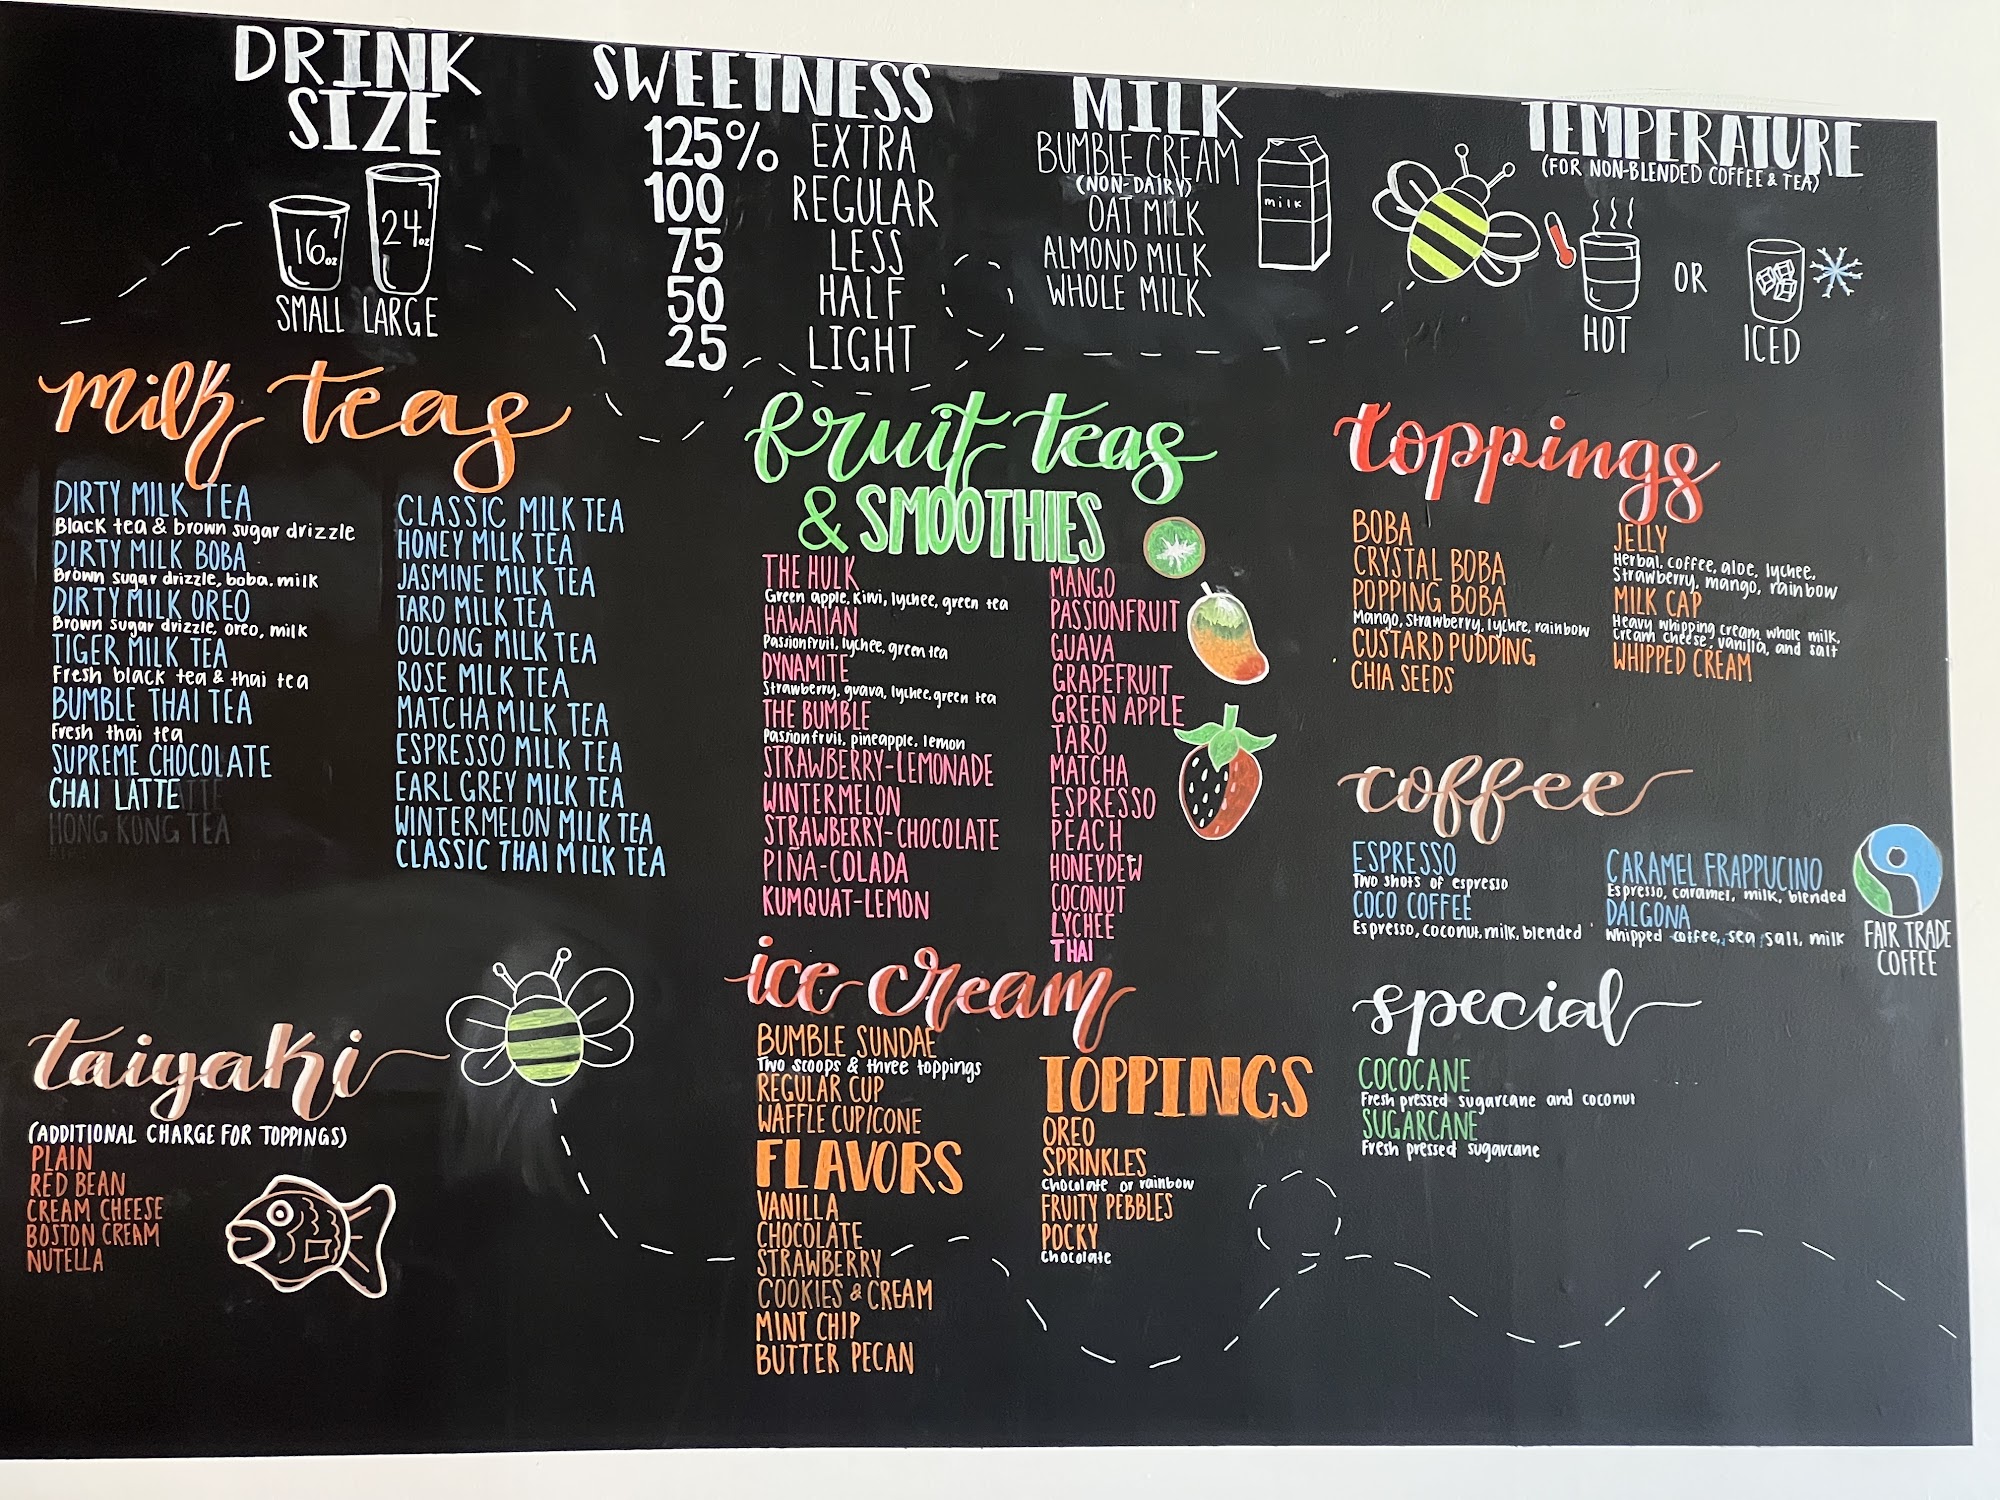 DRINK
SIZE
16oz
24oz
SMALL LARGE
SWEETNESS
125% EXTRA
100 REGULAR
75 LESS
50 HALF
25 LIGHT
MILK
BUMBLE CREAM
(NON-DAIRY)
OAT MILK
ALMOND MILK
WHOLE MILK
milk
TEMPERATURE
(FOR NON-BLENDED COFFEE & TEA)
HOT
OR
ICED
milk teas
DIRTY MILK TEA
Black tea & brown sugar drizzle
DIRTY MILK BOBA
Brown sugar drizzle, boba, milk
DIRTY MILK OREO
Brown sugar drizzle, oreo, milk
TIGER MILK TEA
Fresh black tea & thai tea
BUMBLE THAI TEA
Fresh thai tea
SUPREME CHOCOLATE
CHAI LATTE
HONG KONG TEA
CLASSIC MILK TEA
HONEY MILK TEA
JASMINE MILK TEA
TARO MILK TEA
OOLONG MILK TEA
ROSE MILK TEA
MATCHA MILK TEA
ESPRESSO MILK TEA
EARL GREY MILK TEA
WINTERMELON MILK TEA
CLASSIC THAI MILK TEA
fruit teas
& SMOOTHIES
THE HULK
Green apple, kiwi, lychee, green tea
HAWAIIAN
Passionfruit, lychee, green tea
DYNAMITE
Strawberry, guava, lychee, green tea
THE BUMBLE
Passionfruit, pineapple, lemon
STRAWBERRY-LEMONADE
WINTERMELON
STRAWBERRY-CHOCOLATE
PIÑA-COLADA
KUMQUAT-LEMON
MANGO
PASSIONFRUIT
GUAVA
GRAPEFRUIT
GREEN APPLE
TARO
MATCHA
ESPRESSO
PEACH
HONEYDEW
COCONUT
LYCHEE
THAI
toppings
BOBA
CRYSTAL BOBA
POPPING BOBA
Mango, strawberry, lychee, rainbow
CUSTARD PUDDING
CHIA SEEDS
JELLY
Herbal, coffee, aloe, lychee,
Strawberry, mango, rainbow
MILK CAP
Heavy whipping cream, whole milk,
Cream cheese, vanilla, and salt
WHIPPED CREAM
coffee
ESPRESSO
Two shots of espresso
COCO COFFEE
Espresso, coconut, milk, blended
CARAMEL FRAPPUCINO
Espresso, caramel, milk, blended
DALGONA
Whipped coffee, sea salt, milk
FAIR TRADE
COFFEE
taiyaki
(ADDITIONAL CHARGE FOR TOPPINGS)
PLAIN
RED BEAN
CREAM CHEESE
BOSTON CREAM
NUTELLA
ice cream
BUMBLE SUNDAE
Two scoops & three toppings
REGULAR CUP
WAFFLE CUP/CONE
FLAVORS
VANILLA
CHOCOLATE
STRAWBERRY
COOKIES & CREAM
MINT CHIP
BUTTER PECAN
TOPPINGS
OREO
SPRINKLES
Chocolate or rainbow
FRUITY PEBBLES
POCKY
Chocolate
special
COCOCANE
Fresh pressed sugarcane and coconut
SUGARCANE
Fresh pressed sugarcane